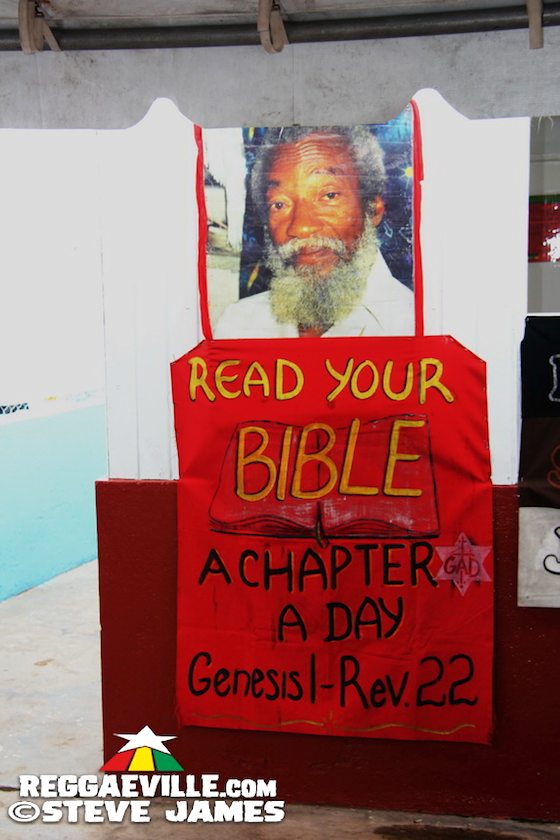 READ YOUR
BIBLE
A CHAPTER
GAD
A DAY
Genesis 1-Rev. 22
REGGAEVILLE.COM
©STEVE JAMES